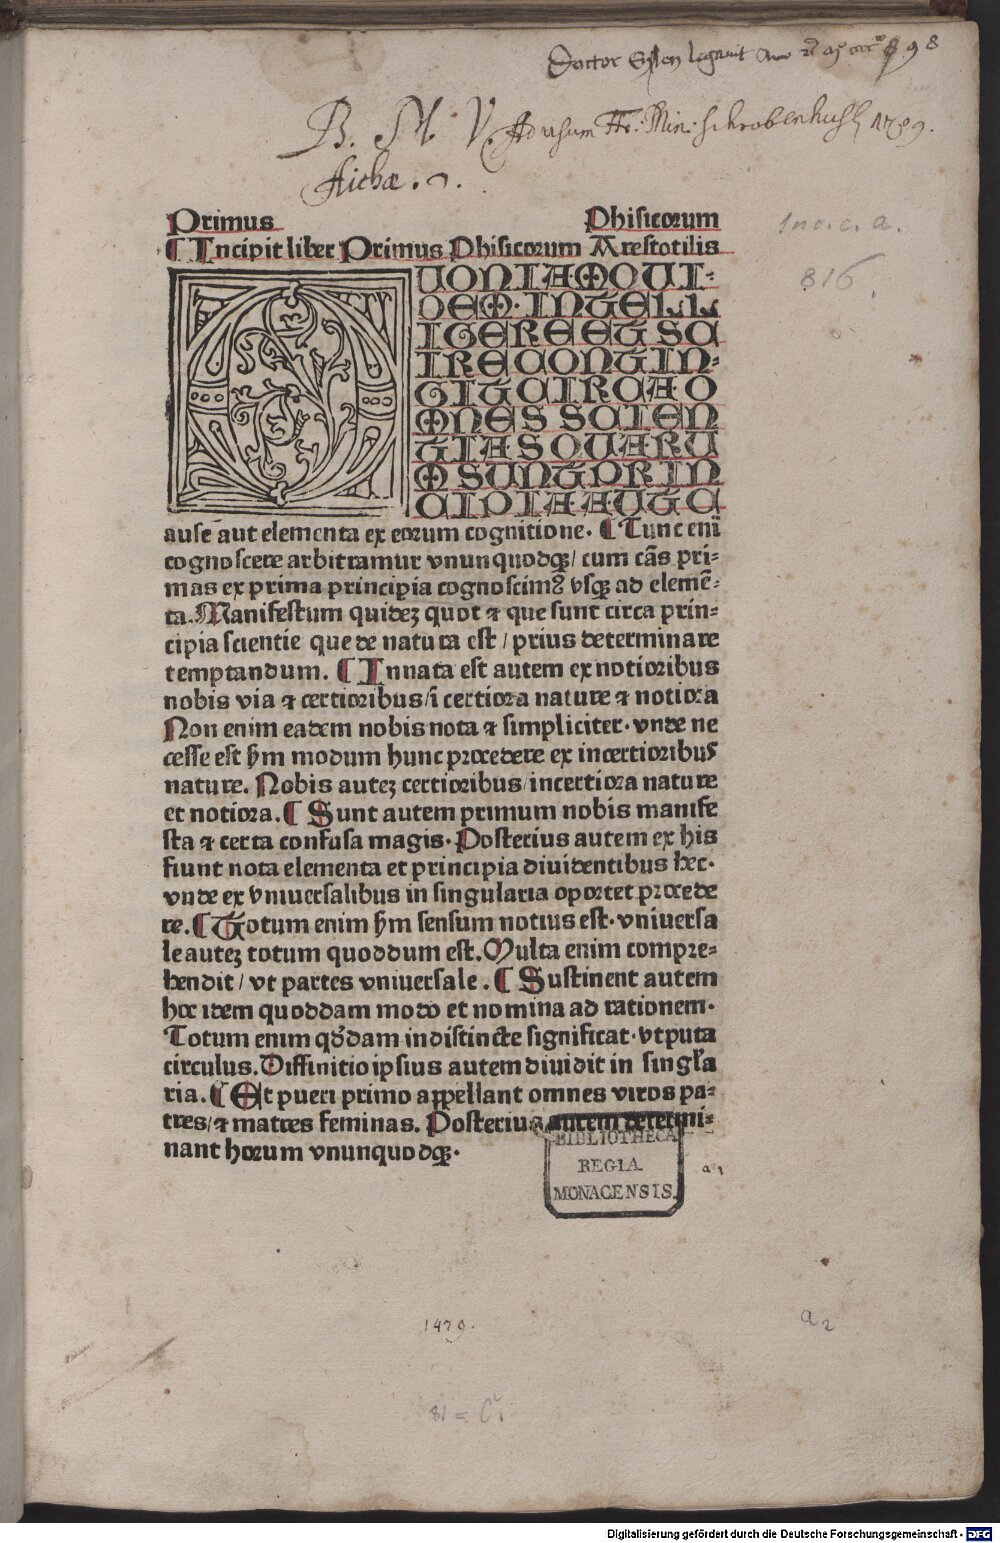 Doctor
B. M. V. Ad usum Fr: Min: schrobenhuss 1789.
Aichæ.
Primus Phisicorum
Inc. c. a.
¶ Incipit liber Primus Phisicorum Arestotilis
816.
QUONIAM QUI-
DEM. INTELL
IGERE ET SC
IRE CONTIN-
GIT CIRCA O
MNES SCIEN
TIAS QUARU
M SUNT PRIN
CIPIA AUT C
ause aut elementa ex eorum cognitione. ¶ Tunc enī
cognoscere arbitramur vnunquodqꝫ/ cum cās pri-
mas ex prima principia cognoscimꝰ vsqꝫ ad elemē-
ta. Manifestum quideꝫ quot ⁊ que sunt circa prin-
cipia scientie que de natura est / prius determinare
temptandum. ¶ Innata est autem ex notioribus
nobis via ⁊ certioribus/ī certiora nature ⁊ notiora
Non enim eadem nobis nota ⁊ simpliciter. vnde ne
cesse est ẜm modum hunc procedere ex incertioribus
nature. Nobis auteꝫ certioribus/incertiora nature
et notiora. ¶ Sunt autem primum nobis manife
sta ⁊ certa confusa magis. Posterius autem ex his
fiunt nota elementa et principia diuidentibus hec.
vnde ex vniuersalibus in singularia oportet procede
re. ¶ Totum enim ẜm sensum notius est. vniuersa
le auteꝫ totum quoddum est. Multa enim compre-
hendit / vt partes vniuersale. ¶ Sustinent autem
hoc idem quoddam modo et nomina ad rationem.
Totum enim qđdam indistincte significat. vt puta
circulus. Diffinitio ipsius autem diuidit in singl'a
ria. ¶ Et pueri primo appellant omnes viros pa-
tres/⁊ matres feminas. Posterius autem determi-
nant horum vnunquodqꝫ.
BIBLIOTHECA
REGIA
MONACENSIS.
a 1
1479.
a 2
Digitalisierung gefördert durch die Deutsche Forschungsgemeinschaft - DFG